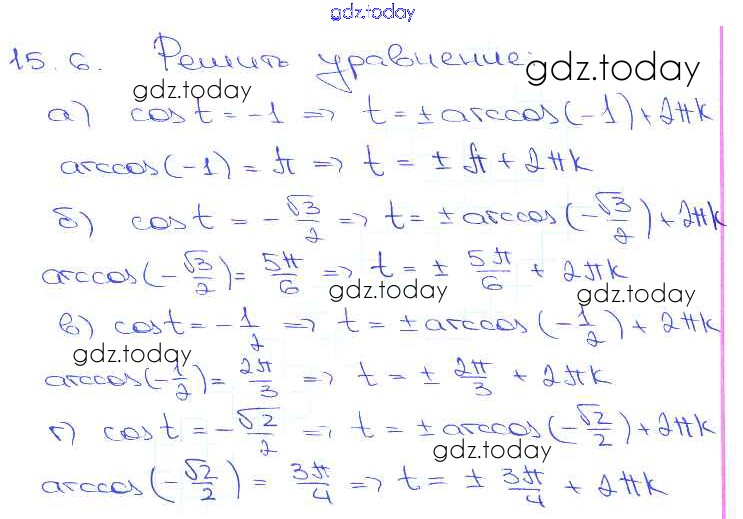 gdz.today
15.6. Решить уравнение:
gdz.today
gdz.today
а) cos t = -1 => t = ± arccos(-1) + 2πk
arccos(-1) = π => t = ± π + 2πk
б) cos t = -√3/2 => t = ± arccos(-√3/2) + 2πk
arccos(-√3/2) = 5π/6 => t = ± 5π/6 + 2πk
gdz.today
gdz.today
в) cos t = -1/2 => t = ± arccos(-1/2) + 2πk
gdz.today
arccos(-1/2) = 2π/3 => t = ± 2π/3 + 2πk
г) cos t = -√2/2 => t = ± arccos(-√2/2) + 2πk
gdz.today
arccos(-√2/2) = 3π/4 => t = ± 3π/4 + 2πk